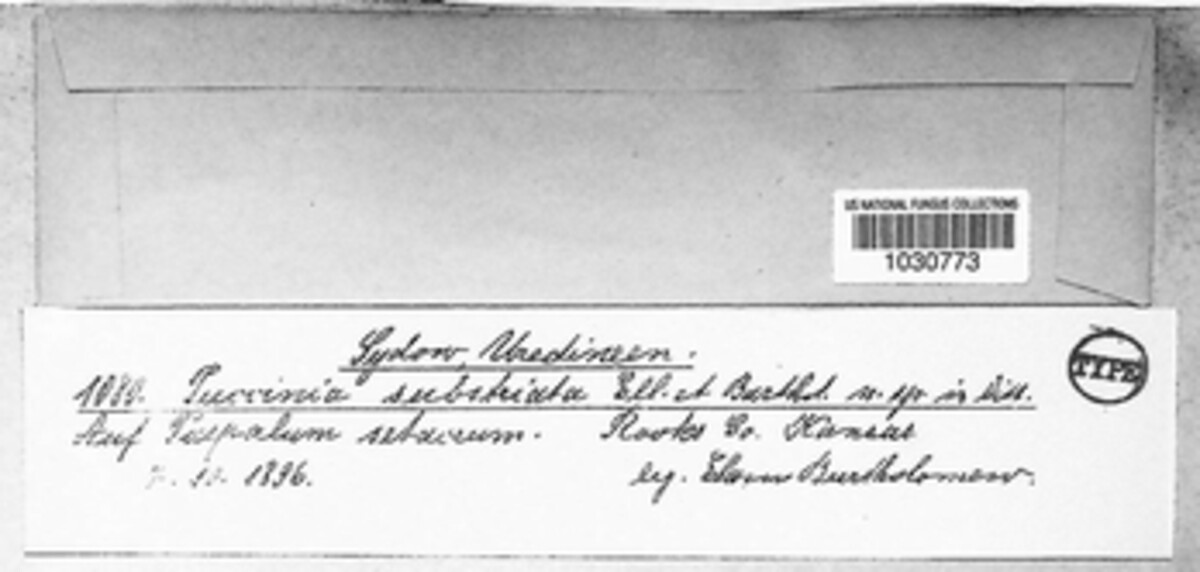 US NATIONAL FUNGUS COLLECTIONS
1030773
Sydow, Uredineen.
TYPE
1080. Puccinia substriata Ell. et Barthol. n. sp. in litt.
Auf Paspalum setaceum. Rooks Co. Kansas
10. 1896. leg. Elam Bartholomew.